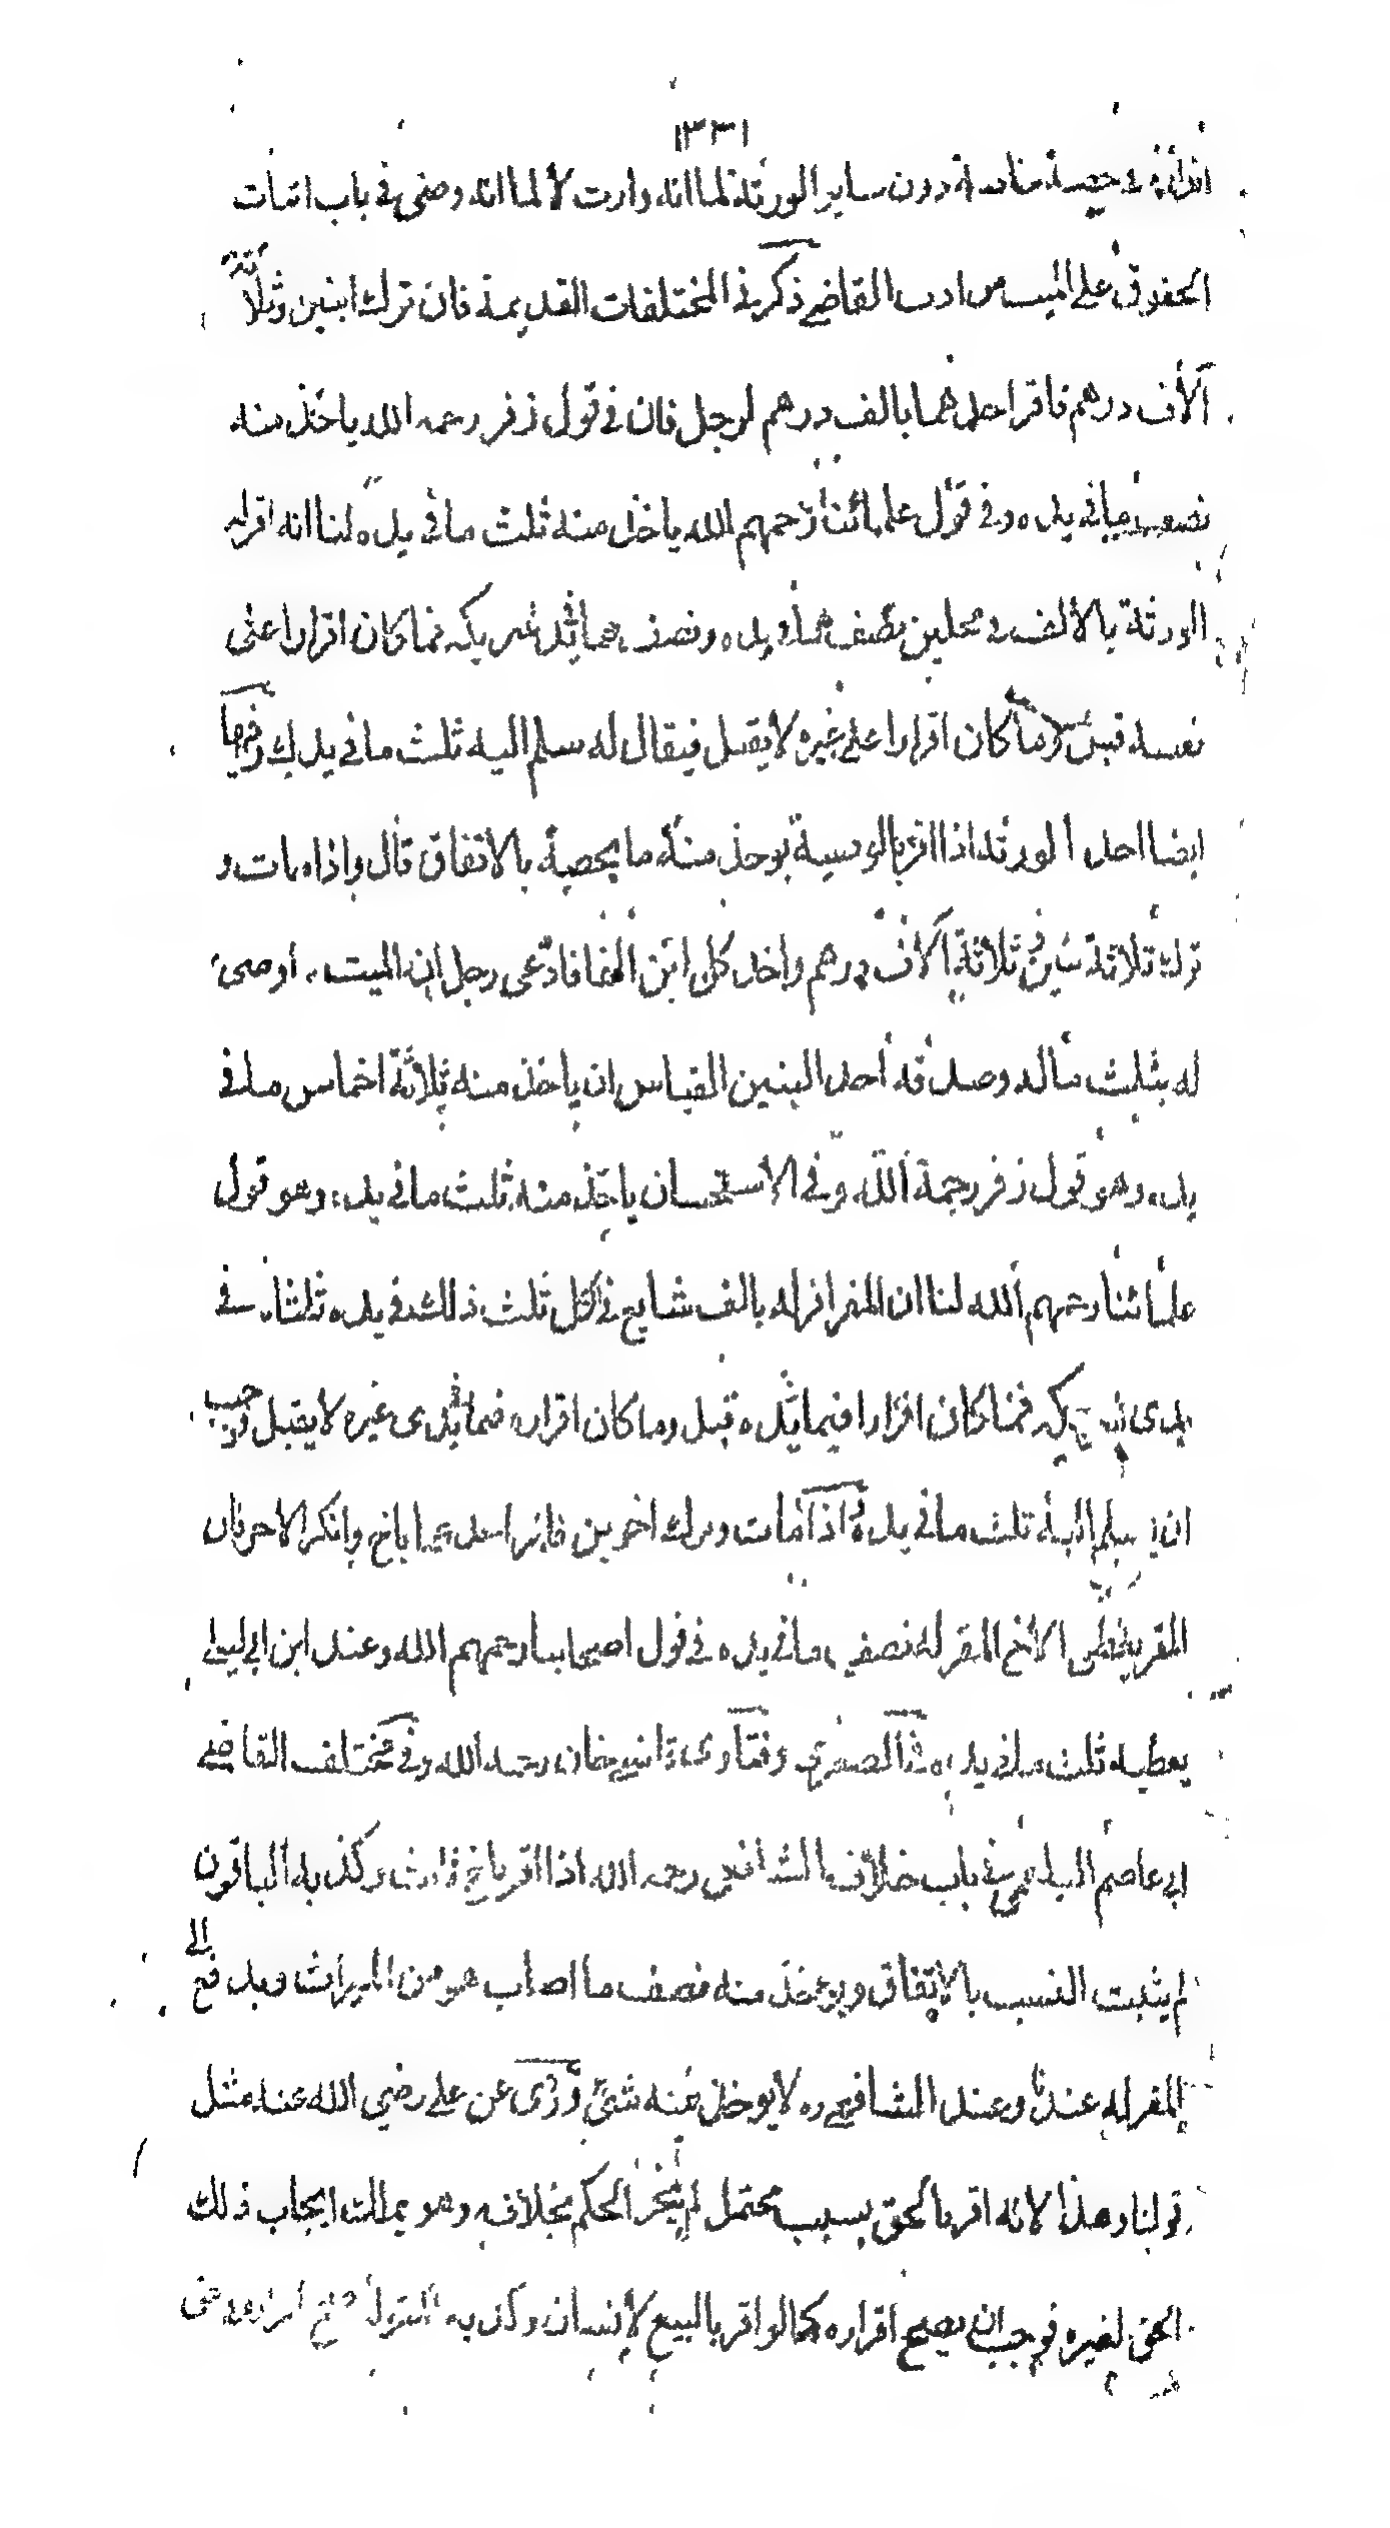 ١٣٣١
اقراره في حصته خاصة دون ساير الورثة لما انه وارث لا لما انه وصي في باب اثبات
الحقوق على الميت من ادب القاضي ذكر في المختلفات القديمة فان ترك ابنين وثلاثة
آلاف درهم فاقر احدهما بالف درهم لرجل فان في قول زفر رحمه الله ياخذ منه
نصف ما في يده وفي قول علمائنا رحمهم الله ياخذ منه ثلث ما في يده لنا انه اقر له
الورثة بالالف في محلين نصفهما في يده ونصفهما في يد شريكه فما كان اقرارا على
نفسه قبل لا ما كان اقرارا على غيره لا يقبل فيقال له سلم اليه ثلث ما في يدك وفيها
ايضا احد الورثة اذا اقر بالوصية يوخذ منه ما يخصه بالاتفاق قال واذا مات و
ترك ثلاثة بنين وثلاثة آلاف درهم واخذ كل ابن الفا فادعى رجل ان الميت اوصى
له بثلث ماله وصدقه احد البنين القياس ان ياخذ منه ثلاثة اخماس ما في
يده وهو قول زفر رحمة الله وفي الاستحسان ياخذ منه ثلث ما في يده وهو قول
علمائنا رحمهم الله لنا ان المقر اقر له بالف شايع في كل ثلث ذلك في يده ثلثاه في
يدي شريكه فما كان اقرارا فيما يده قبل وما كان اقراره فيما يدي غيره لا يقبل فوجب
ان يسلم اليه ثلث ما في يده اذا مات وترك اخوين فاقر احدهما باخ وانكر الاخر فان
المقر يعطى الاخ المقر له نصف ما في يده في قول اصحابنا رحمهم الله وعند ابن ابي ليلى
يعطيه ثلث ما في يده في الصغرى وفتاوى قاضيخان رحمه الله وفي مختلف القاضي
ابي عاصم العامري في باب خلاف الشافعي رحمه الله اذا اقر باخ وارث وكذبه الباقون
لم يثبت النسب بالاتفاق ويوخذ منه نصف ما اصاب هو من الميراث ويدفع الى
المقر له عندنا وعند الشافعي ره لا يوخذ منه شئ وروى عن علي رضي الله عنه مثل
قولنا وهذا لانه اقر بالحق بسبب محتمل لم يجز الحكم بخلافه وهو يملك ايجاب ذلك
الحق لغيره فوجب ان يصح اقراره كما لو اقر بالبيع لانسان وكذبه